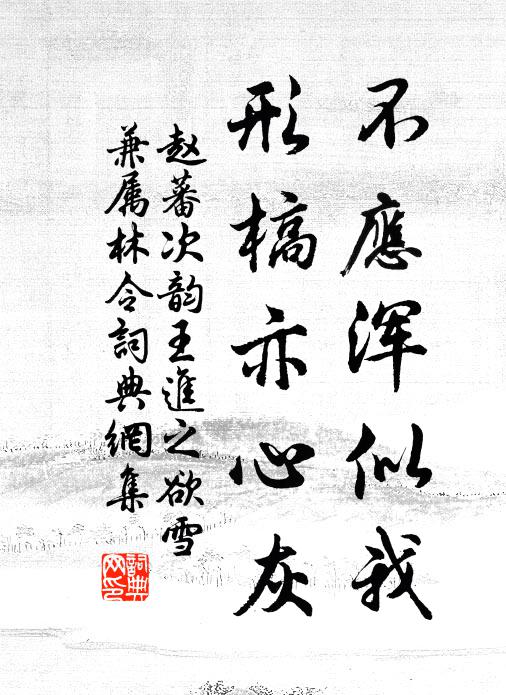 不應浑似我
形槁亦心灰
赵蕃次韵王進之欲雪
兼属林令詞典網集
詞典
网印